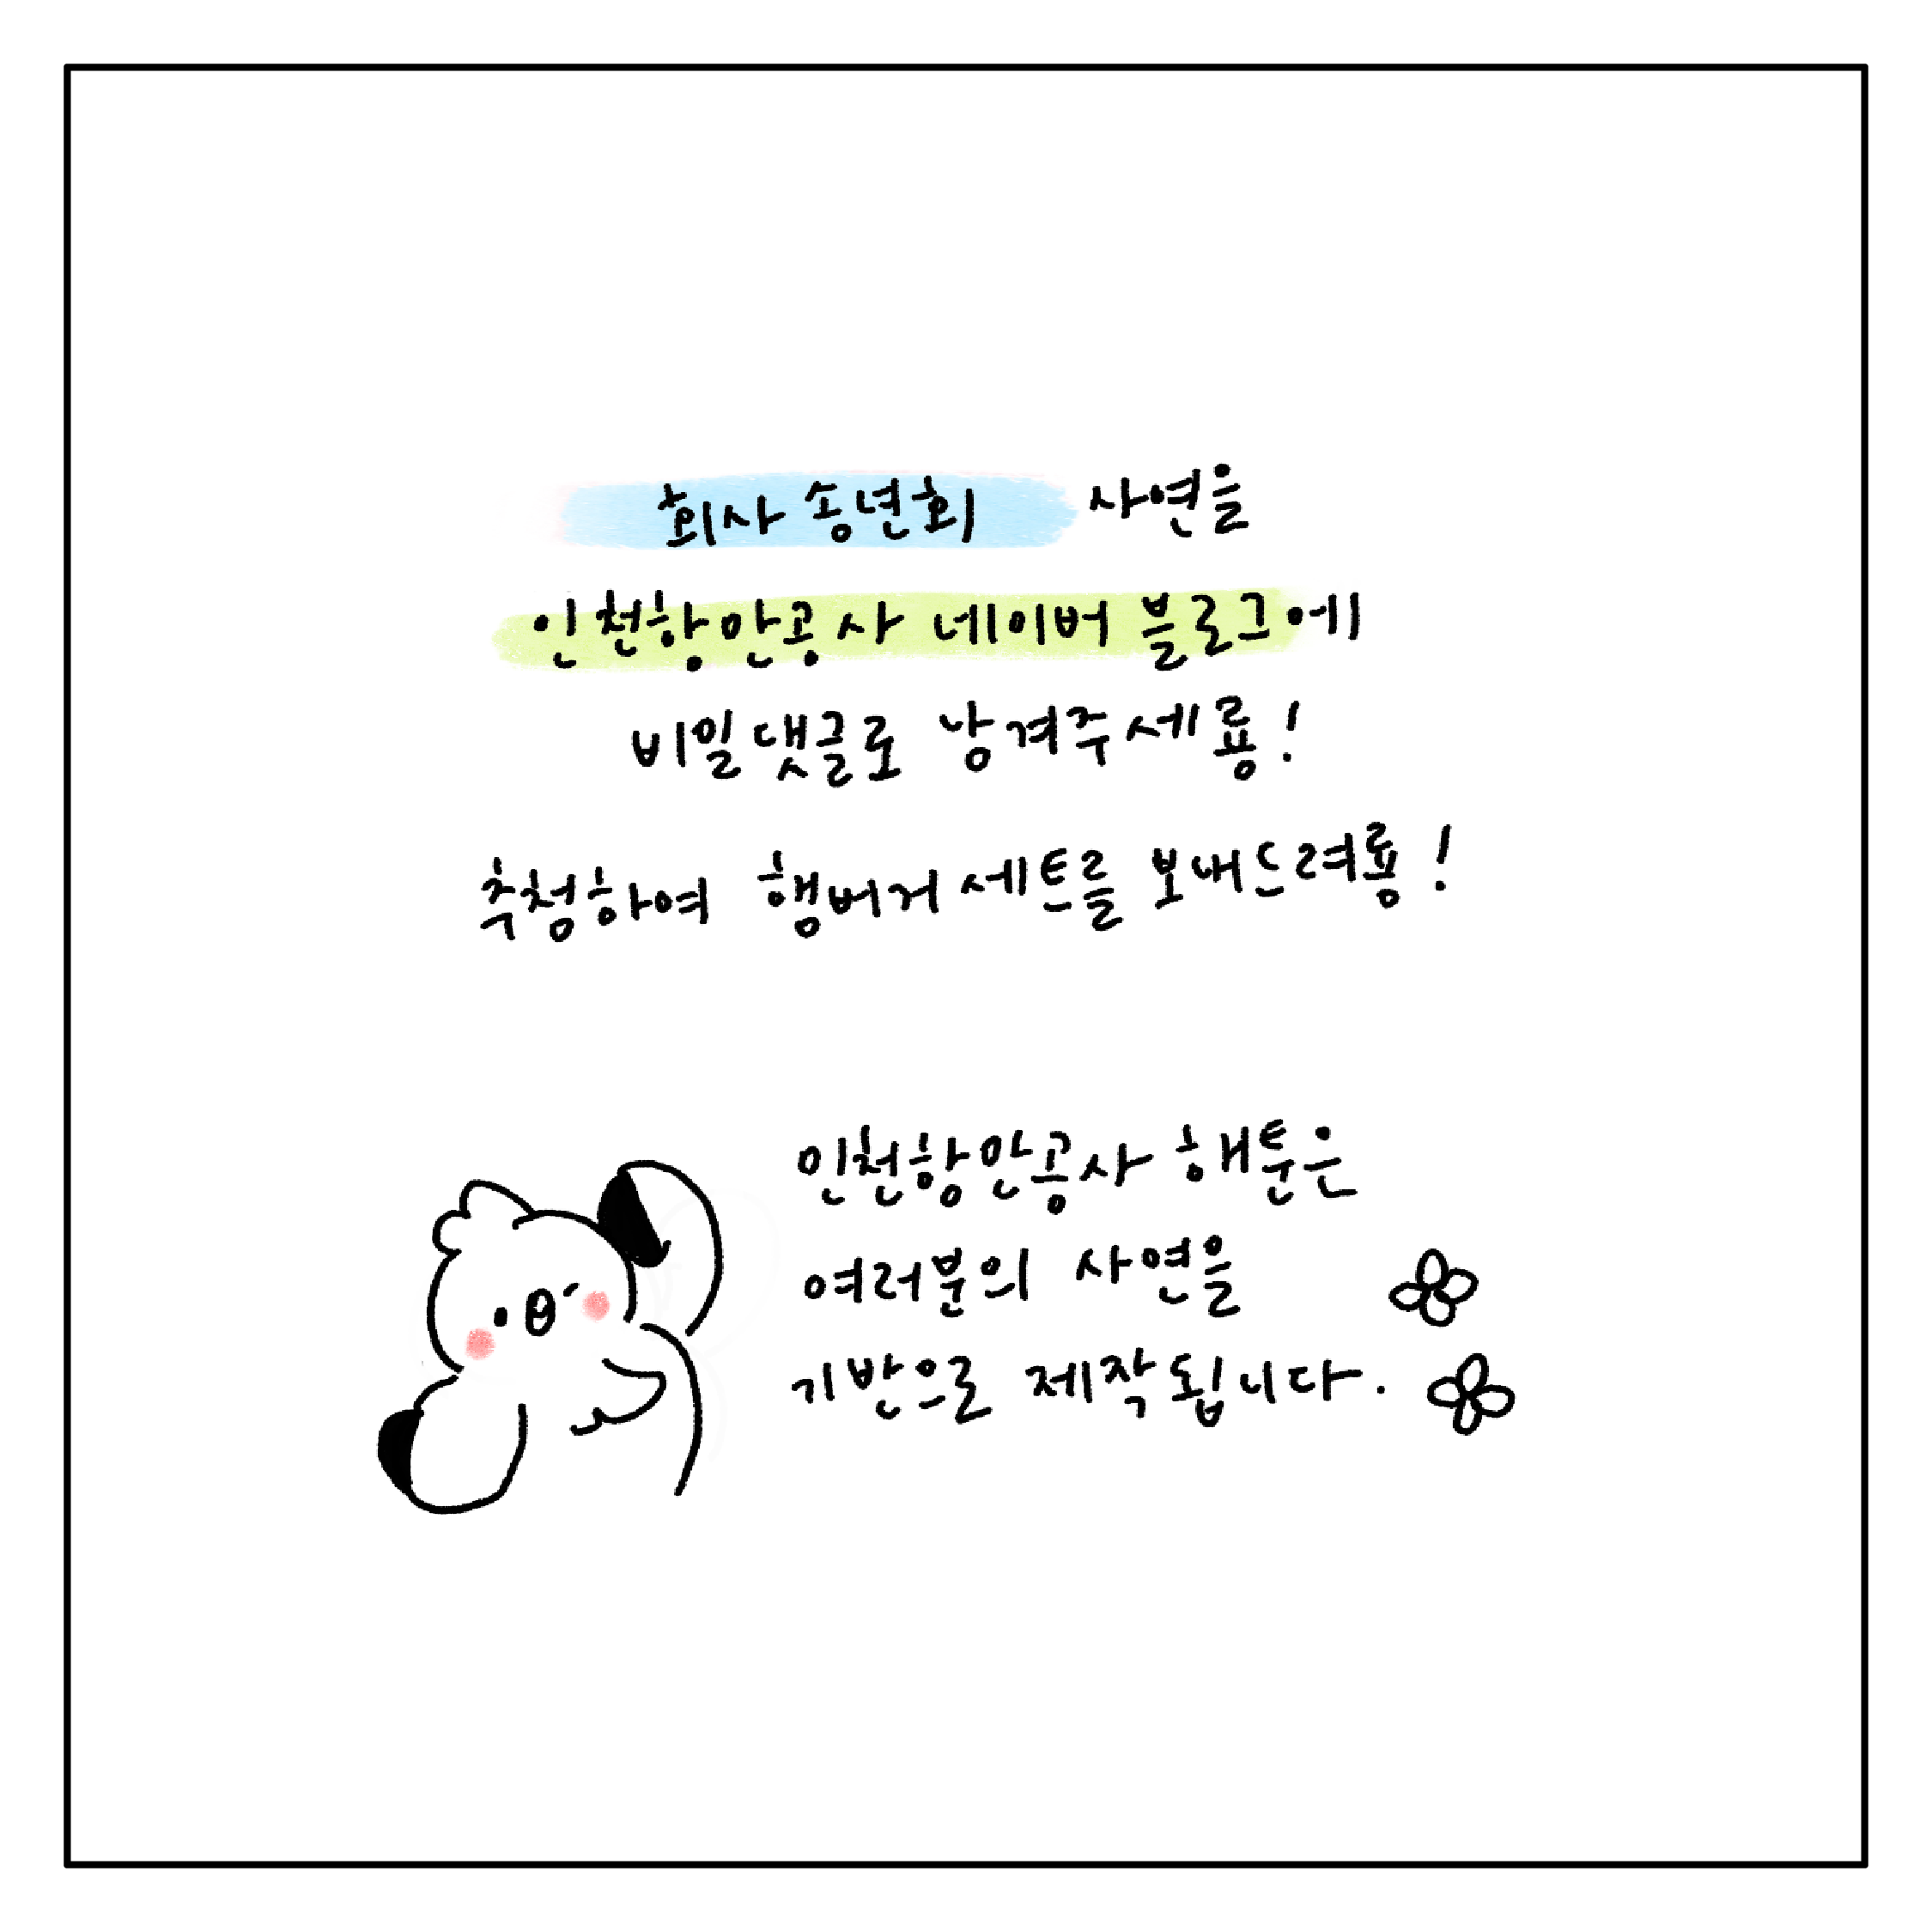 회사 송년회 사연을
인천항만공사 네이버 블로그에
비밀댓글로 남겨주세룡!
추첨하여 햄버거 세트를 보내드려룡!
인천항만공사 해툰은
여러분의 사연을
기반으로 제작됩니다.